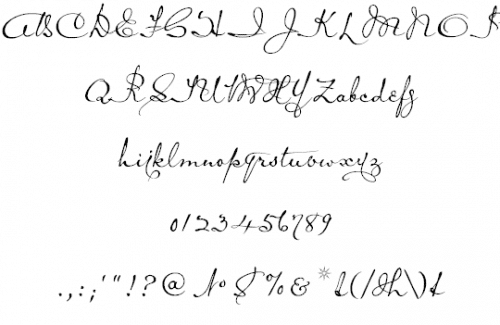 ABCDEFGHIJKLMNOP
QRSTUVWXYZabcdefg
hijklmnopqrstuvwxyz
0123456789
.,:;'"!?@ No $%&*